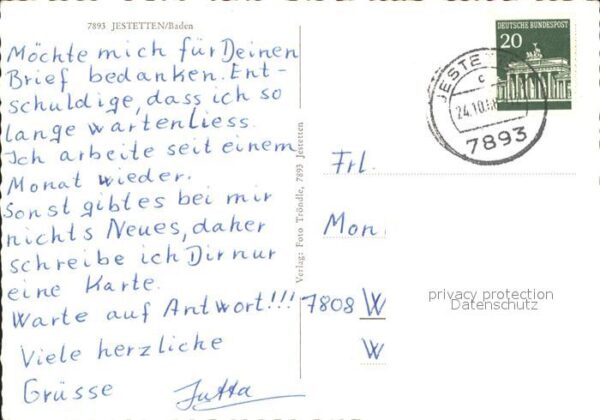 7893 JESTETTEN/Baden
Möchte mich für Deinen
Brief bedanken. Ent-
schuldige, dass ich so
lange warten liess.
Ich arbeite seit einem
Monat wieder.
Sonst gibt es bei mir
nichts Neues, daher
schreibe ich Dir nur
eine Karte.
Warte auf Antwort!!!
Viele herzliche
Grüsse Jutta
Verlag: Foto Tröndle, 7893 Jestetten
DEUTSCHE BUNDESPOST
20
JESTE
c
24.10.
7893
Frl.
Mon
7808 W
W
privacy protection
Datenschutz